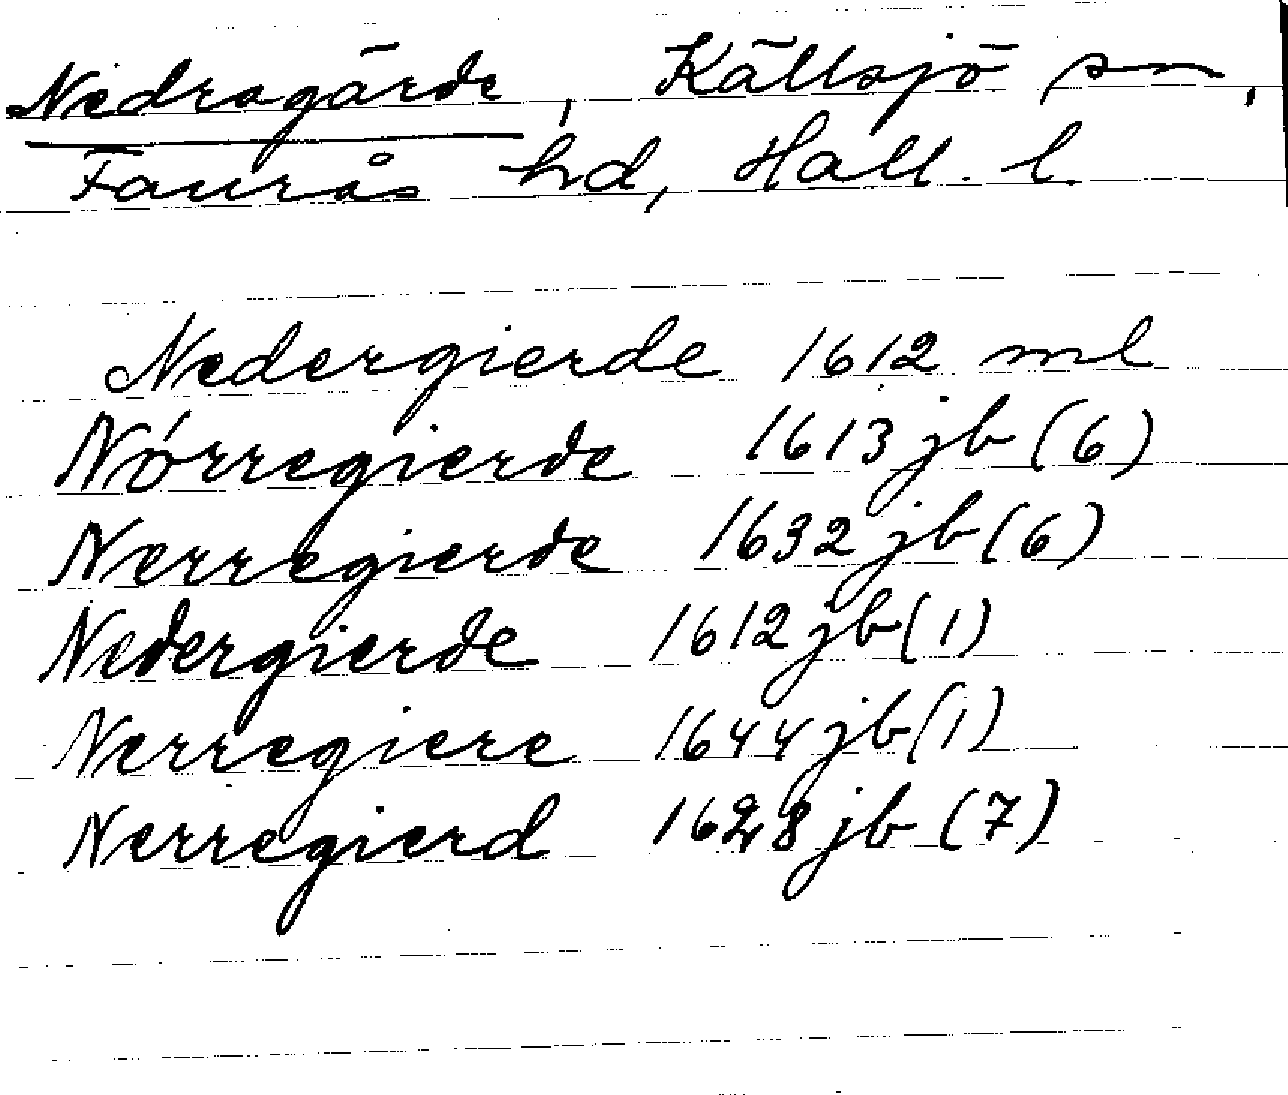 Nedragärde, Källsjö sn,
Faurås hd, Hall. l.
Nedergierde 1612 ml
Nórregierde 1613 jb (6)
Nerregierde 1632 jb (6)
Nedergierde 1612 jb (1)
Nerregiere 1644 jb (1)
Nerregierd 1628 jb (7)